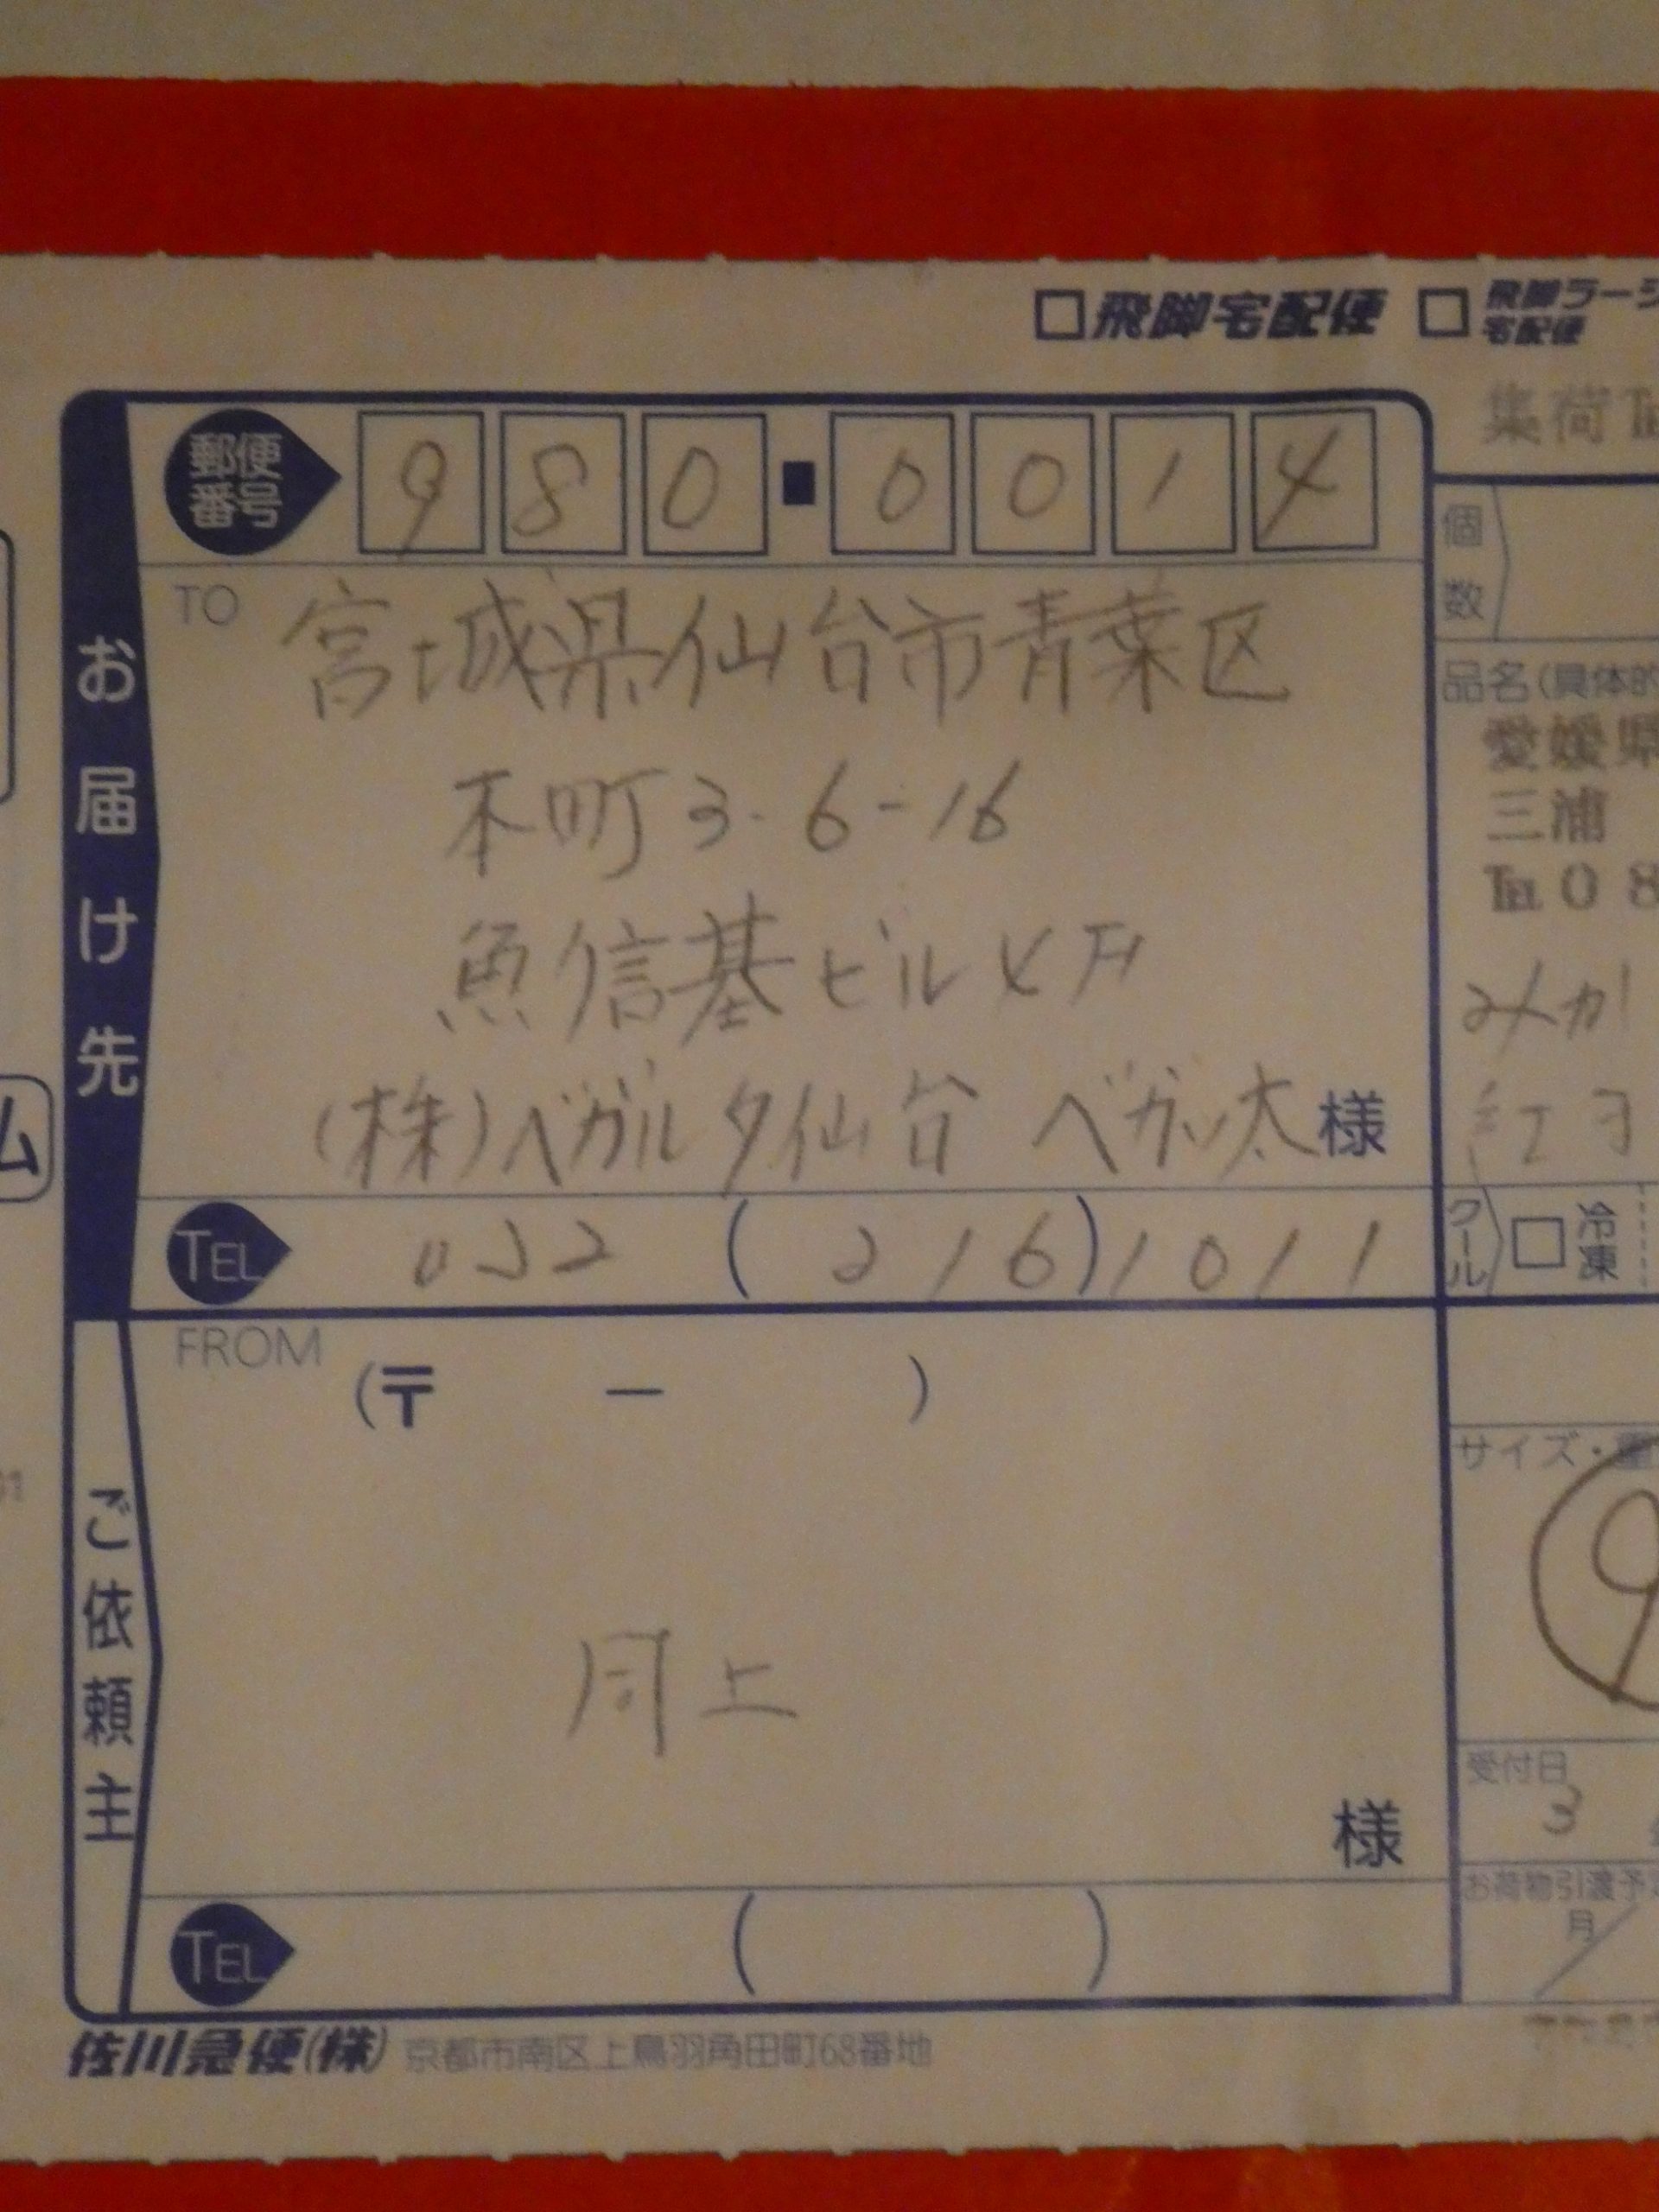 飛脚宅配便
飛脚ラージ
宅配便
集荷℡
お届け先
郵便
番号
980-0014
TO
宮城県仙台市青葉区
本町3-6-16
魚信基ビル4F
(株)ベガルタ仙台 ベガッ太様
TEL 022 (216) 1011
ご依頼主
FROM
(〒 ー )
同上
様
TEL ( )
佐川急便(株) 京都市南区上鳥羽角田町68番地
個
数
品名(具体的
愛媛県
三浦
℡08
みか
紅
クール
冷凍
サイズ・重
9
受付日
3
お荷物引渡予定
月
払